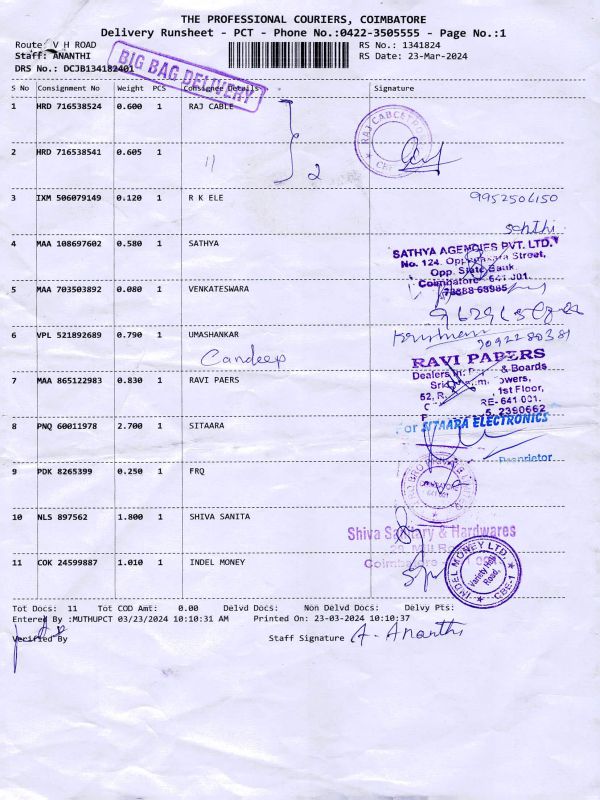 THE PROFESSIONAL COURIERS, COIMBATORE
Delivery Runsheet - PCT - Phone No.:0422-3505555 - Page No.:1
Route: V H ROAD
Staff: ANANTHI
DRS No.: DCJB134182401
RS No.: 1341824
RS Date: 23-Mar-2024
BIG BAG DELIVERY
S No Consignment No Weight PCS Consignee Details Signature
1 HRD 716538524 0.600 1 RAJ CABLE
2 HRD 716538541 0.605 1 11 2
3 IXM 506079149 0.120 1 R K ELE 9952506150
4 MAA 108697602 0.580 1 SATHYA
SATHYA AGENCIES PVT. LTD.
No. 124, Street,
Opp. State Bank
Coimbatore - 641 001.
5 MAA 703503892 0.080 1 VENKATESWARA
6 VPL 521892689 0.790 1 UMASHANKAR
7092280381
7 MAA 865122983 0.830 1 RAVI PAERS
RAVI PAPERS
Dealers in: & Boards
1st Floor,
RE- 641 001.
2390662
8 PNQ 60011978 2.700 1 SITAARA
For SITAARA ELECTRONICS
Proprietor
9 PDK 8265399 0.250 1 FRQ
10 NLS 897562 1.800 1 SHIVA SANITA
Shiva Sanitary & Hardwares
11 COK 24599887 1.010 1 INDEL MONEY
INDEL MONEY LTD
Variety Hall Road,
CBE-1
Tot Docs: 11 Tot COD Amt: 0.00 Delvd Docs: Non Delvd Docs: Delvy Pts:
Entered By :MUTHUPCT 03/23/2024 10:10:31 AM Printed On: 23-03-2024 10:10:37
Verified By Staff Signature A. Ananthi